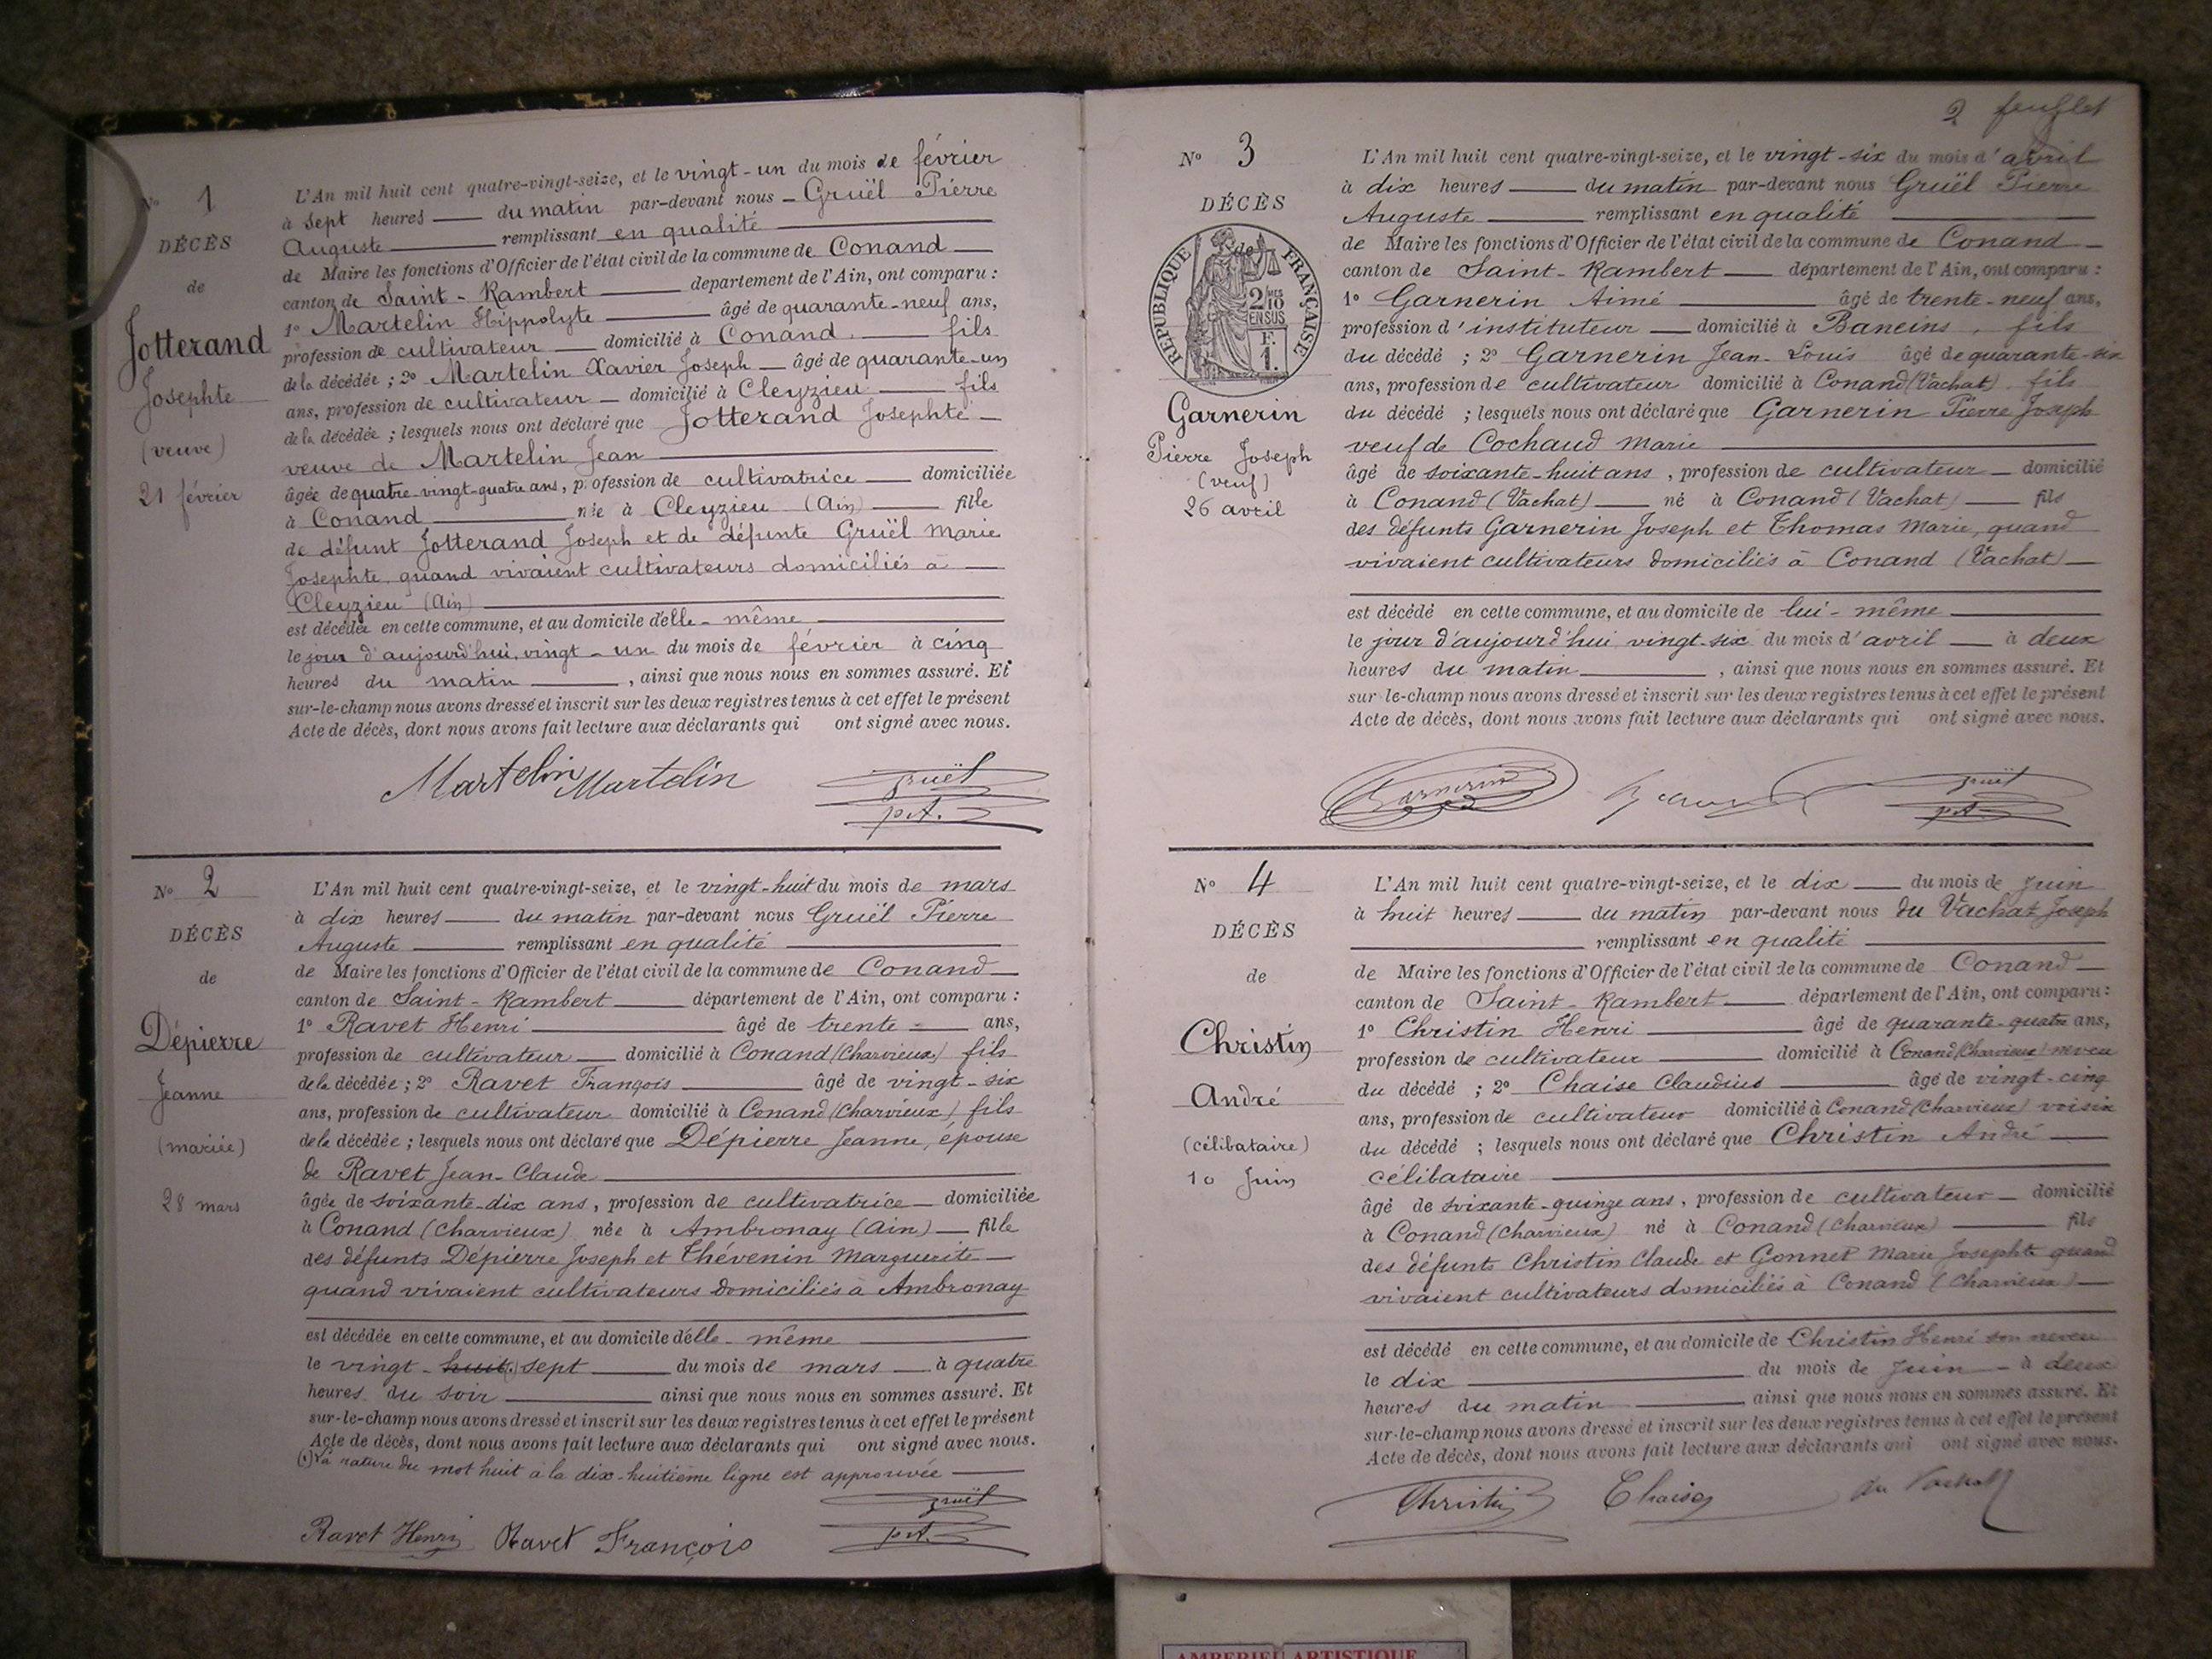 No 1
DÉCÈS
de
Jotterand
Josephte
(veuve)
21 février
L'An mil huit cent quatre-vingt-seize, et le vingt-un du mois de février
à sept heures du matin par-devant nous Gruël Pierre
Auguste remplissant en qualité
de Maire les fonctions d'Officier de l'état civil de la commune de Conand
canton de Saint-Rambert département de l'Ain, ont comparu :
1° Martelin Hippolyte âgé de quarante-neuf ans,
profession de cultivateur domicilié à Conand, fils
de la décédée ; 2° Martelin Xavier Joseph âgé de quarante-un
ans, profession de cultivateur domicilié à Cleyzieu fils
de la décédée ; lesquels nous ont déclaré que Jotterand Josephte
veuve de Martelin Jean
âgée de quatre-vingt-quatre ans, profession de cultivatrice domiciliée
à Conand née à Cleyzieu (Ain) fille
de défunt Jotterand Joseph et de défunte Gruël Marie
Josephte, quand vivaient cultivateurs domiciliés à
Cleyzieu (Ain)
est décédée en cette commune, et au domicile d'elle-même
le jour d'aujourd'hui, vingt-un du mois de février à cinq
heures du matin, ainsi que nous nous en sommes assuré. Et
sur-le-champ nous avons dressé et inscrit sur les deux registres tenus à cet effet le présent
Acte de décès, dont nous avons fait lecture aux déclarants qui ont signé avec nous.
Martelin Martelin gruël
p.A.
No 2
DÉCÈS
de
Dépierre
Jeanne
(mariée)
28 mars
L'An mil huit cent quatre-vingt-seize, et le vingt-huit du mois de mars
à dix heures du matin par-devant nous Gruël Pierre
Auguste remplissant en qualité
de Maire les fonctions d'Officier de l'état civil de la commune de Conand
canton de Saint-Rambert département de l'Ain, ont comparu :
1° Ravet Henri âgé de trente ans,
profession de cultivateur domicilié à Conand (Charvieux) fils
de la décédée ; 2° Ravet François âgé de vingt-six
ans, profession de cultivateur domicilié à Conand (Charvieux) fils
de la décédée ; lesquels nous ont déclaré que Dépierre Jeanne, épouse
de Ravet Jean-Claude
âgée de soixante-dix ans, profession de cultivatrice domiciliée
à Conand (Charvieux) née à Ambronay (Ain) fille
des défunts Dépierre Joseph et Thévenin Marguerite
quand vivaient cultivateurs domiciliés à Ambronay
est décédée en cette commune, et au domicile d'elle-même
le vingt-huit (1) sept du mois de mars à quatre
heures du soir ainsi que nous nous en sommes assuré. Et
sur-le-champ nous avons dressé et inscrit sur les deux registres tenus à cet effet le présent
Acte de décès, dont nous avons fait lecture aux déclarants qui ont signé avec nous.
(1) La rature du mot huit à la dix-huitième ligne est approuvée
gruël
Ravet Henri Ravet François p.A.
2 feuillet
No 3
DÉCÈS
de
RÉPUBLIQUE FRANÇAISE
2/10 MES
EN SUS
F.
1.
Garnerin
Pierre Joseph
(veuf)
26 avril
L'An mil huit cent quatre-vingt-seize, et le vingt-six du mois d'avril
à dix heures du matin par-devant nous Gruël Pierre
Auguste remplissant en qualité
de Maire les fonctions d'Officier de l'état civil de la commune de Conand
canton de Saint-Rambert département de l'Ain, ont comparu :
1° Garnerin Aimé âgé de trente-neuf ans,
profession d'instituteur domicilié à Baneins, fils
du décédé ; 2° Garnerin Jean-Louis âgé de quarante-six
ans, profession de cultivateur domicilié à Conand (Vachat) fils
du décédé ; lesquels nous ont déclaré que Garnerin Pierre Joseph
veuf de Cochaud Marie
âgé de soixante-huit ans, profession de cultivateur domicilié
à Conand (Vachat) né à Conand (Vachat) fils
des défunts Garnerin Joseph et Thomas Marie, quand
vivaient cultivateurs domiciliés à Conand (Vachat)
est décédé en cette commune, et au domicile de lui-même
le jour d'aujourd'hui vingt-six du mois d'avril à deux
heures du matin, ainsi que nous nous en sommes assuré. Et
sur-le-champ nous avons dressé et inscrit sur les deux registres tenus à cet effet le présent
Acte de décès, dont nous avons fait lecture aux déclarants qui ont signé avec nous.
Garnerin gruël
p.A.
No 4
DÉCÈS
de
Christin
André
(célibataire)
10 Juin
L'An mil huit cent quatre-vingt-seize, et le dix du mois de Juin
à huit heures du matin par-devant nous du Vachat Joseph
remplissant en qualité
de Maire les fonctions d'Officier de l'état civil de la commune de Conand
canton de Saint-Rambert département de l'Ain, ont comparu :
1° Christin Henri âgé de quarante-quatre ans,
profession de cultivateur domicilié à Conand (Charvieux) neveu
du décédé ; 2° Chaise Claudius âgé de vingt-cinq
ans, profession de cultivateur domicilié à Conand (Charvieux) voisin
du décédé ; lesquels nous ont déclaré que Christin André
célibataire
âgé de soixante-quinze ans, profession de cultivateur domicilié
à Conand (Charvieux) né à Conand (Charvieux) fils
des défunts Christin Claude et Gonnet Marie Josephte quand
vivaient cultivateurs domiciliés à Conand (Charvieux)
est décédé en cette commune, et au domicile de Christin Henri son neveu
le dix du mois de Juin à deux
heures du matin ainsi que nous nous en sommes assuré. Et
sur-le-champ nous avons dressé et inscrit sur les deux registres tenus à cet effet le présent
Acte de décès, dont nous avons fait lecture aux déclarants qui ont signé avec nous.
Christin Chaise du Vachat
AMBERIEU ARTISTIQUE